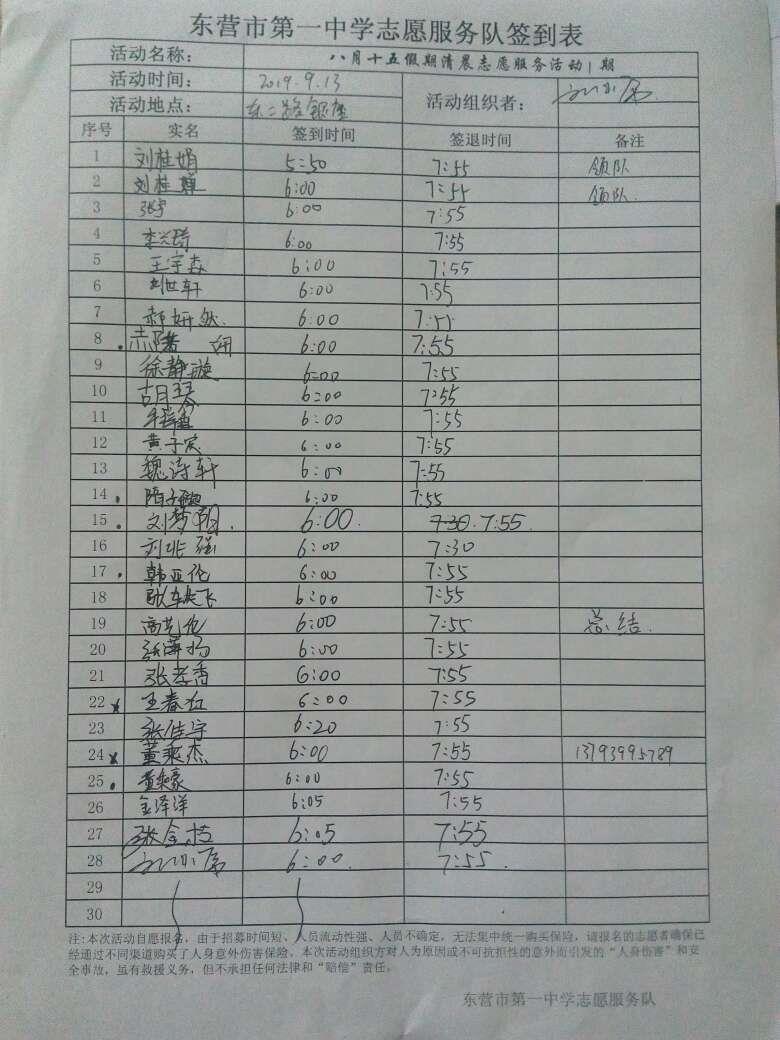 东营市第一中学志愿服务队签到表
活动名称： 八月十五假期清晨志愿服务活动1期
活动时间： 2019.9.13 活动组织者：
活动地点： 东二路银座
序号 实名 签到时间 签退时间 备注
1 刘桂娟 5:50 7:55 领队
2 刘桂 6:00 7:55 领队
3 张宇 6:00 7:55
4 李兴琦 6:00 7:55
5 王宇森 6:00 7:55
6 刘世轩 6:00 7:55
7 郝妍然 6:00 7:55
8 6:00 7:55
9 徐静璇 6:00 7:55
10 胡琴 6:00 7:55
11 6:00 7:55
12 黄子宸 6:00 7:55
13 魏诗轩 6:00 7:55
14 6:00 7:55
15 刘梦 6:00 7:30 7:55
16 刘兆强 6:00 7:30
17 韩亚伦 6:00 7:55
18 飞 6:00 7:55
19 高艺伦 6:00 7:55 总结
20 6:00 7:55
21 张孝香 6:00 7:55
22 王春红 6:00 7:55
23 张佳宇 6:20 7:55
24 董乘杰 6:00 7:55 13793995789
25 董乘豪 6:00 7:55
26 金泽洋 6:05 7:55
27 张金枝 6:05 7:55
28 6:00 7:55
29
30
注:本次活动自愿报名，由于招募时间短、人员流动性强、人员不确定，无法集中统一购买保险，请报名的志愿者确保已
经通过不同渠道购买了人身意外伤害保险。本次活动组织方对人为原因或不可抗拒性的意外而引发的“人身伤害”和安
全事故，虽有救援义务，但不承担任何法律和“赔偿”责任。
东营市第一中学志愿服务队